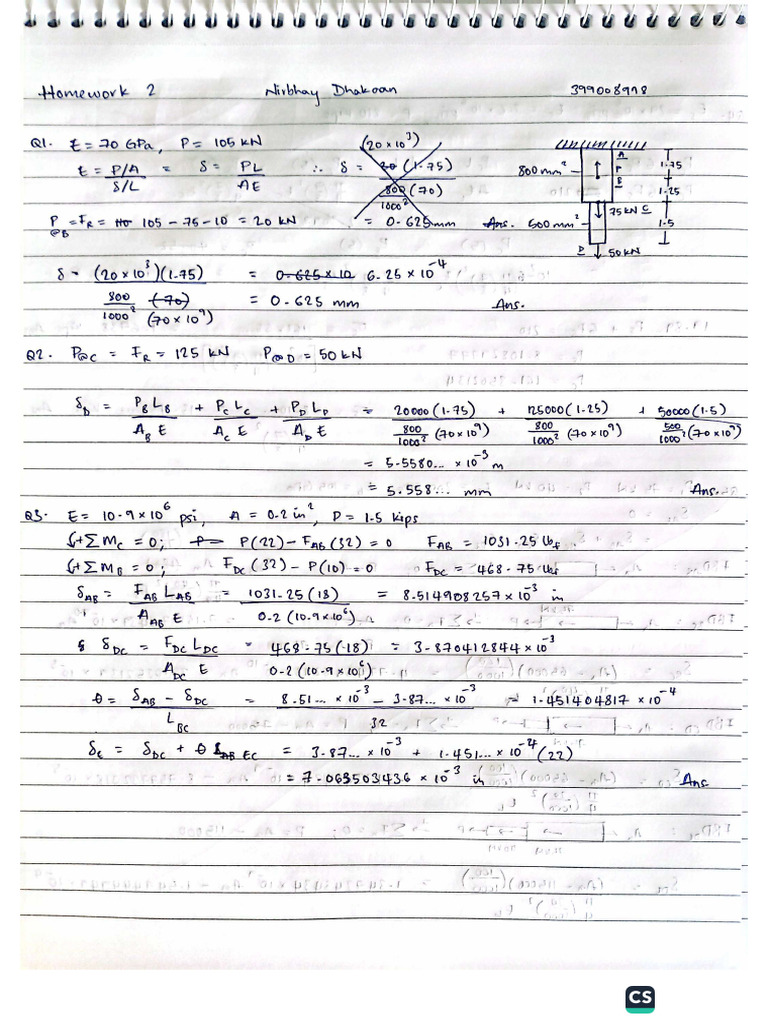 Homework 2 Nirbhay Dhakoan 399008998
Q1. E = 70 GPa, P = 105 kN
E = P/A / δ/L = δ = PL / AE ∴ δ = (20 × 10³) 20 (1.75) / 800/1000² (70)
P@B = F_R = 105 - 75 - 10 = 20 kN = 0.625 mm Ans.
800 mm² A P B 1.75
1.25
75 kN C
500 mm² 1.5
D 50 kN
δ = (20 × 10³)(1.75) / 800/1000² (70) (70 × 10⁹) = 0.625 × 10 6.25 × 10⁻⁴
= 0.625 mm Ans.
Q2. P@C = F_R = 125 kN P@D = 50 kN
δ_D = P_B L_B / A_B E + P_C L_C / A_C E + P_D L_D / A_D E = 20000(1.75) / 800/1000² (70×10⁹) + 125000(1.25) / 800/1000² (70×10⁹) + 50000(1.5) / 500/1000² (70×10⁹)
= 5.5580... × 10⁻³ m
= 5.558... mm Ans.
Q3. E = 10.9×10⁶ psi, A = 0.2 in², P = 1.5 kips
↺+ΣM_C = 0; P P(22) - F_AB(32) = 0 F_AB = 1031.25 lb_f
↺+ΣM_B = 0; F_DC(32) - P(10) = 0 F_DC = 468.75 lb_f
δ_AB = F_AB L_AB / A_AB E = 1031.25(18) / 0.2(10.9×10⁶) = 8.514908257×10⁻³ in
δ_DC = F_DC L_DC / A_DC E = 468.75(18) / 0.2(10.9×10⁶) = 3.870412844×10⁻³
θ = δ_AB - δ_DC / L_BC = 8.51... × 10⁻³ - 3.87... × 10⁻³ / 32 = 1.451404817 × 10⁻⁴
δ_E = δ_DC + θ L_EC = 3.87... × 10⁻³ + 1.451... × 10⁻⁴ (22)
= 7.063503436 × 10⁻³ in Ans
CS